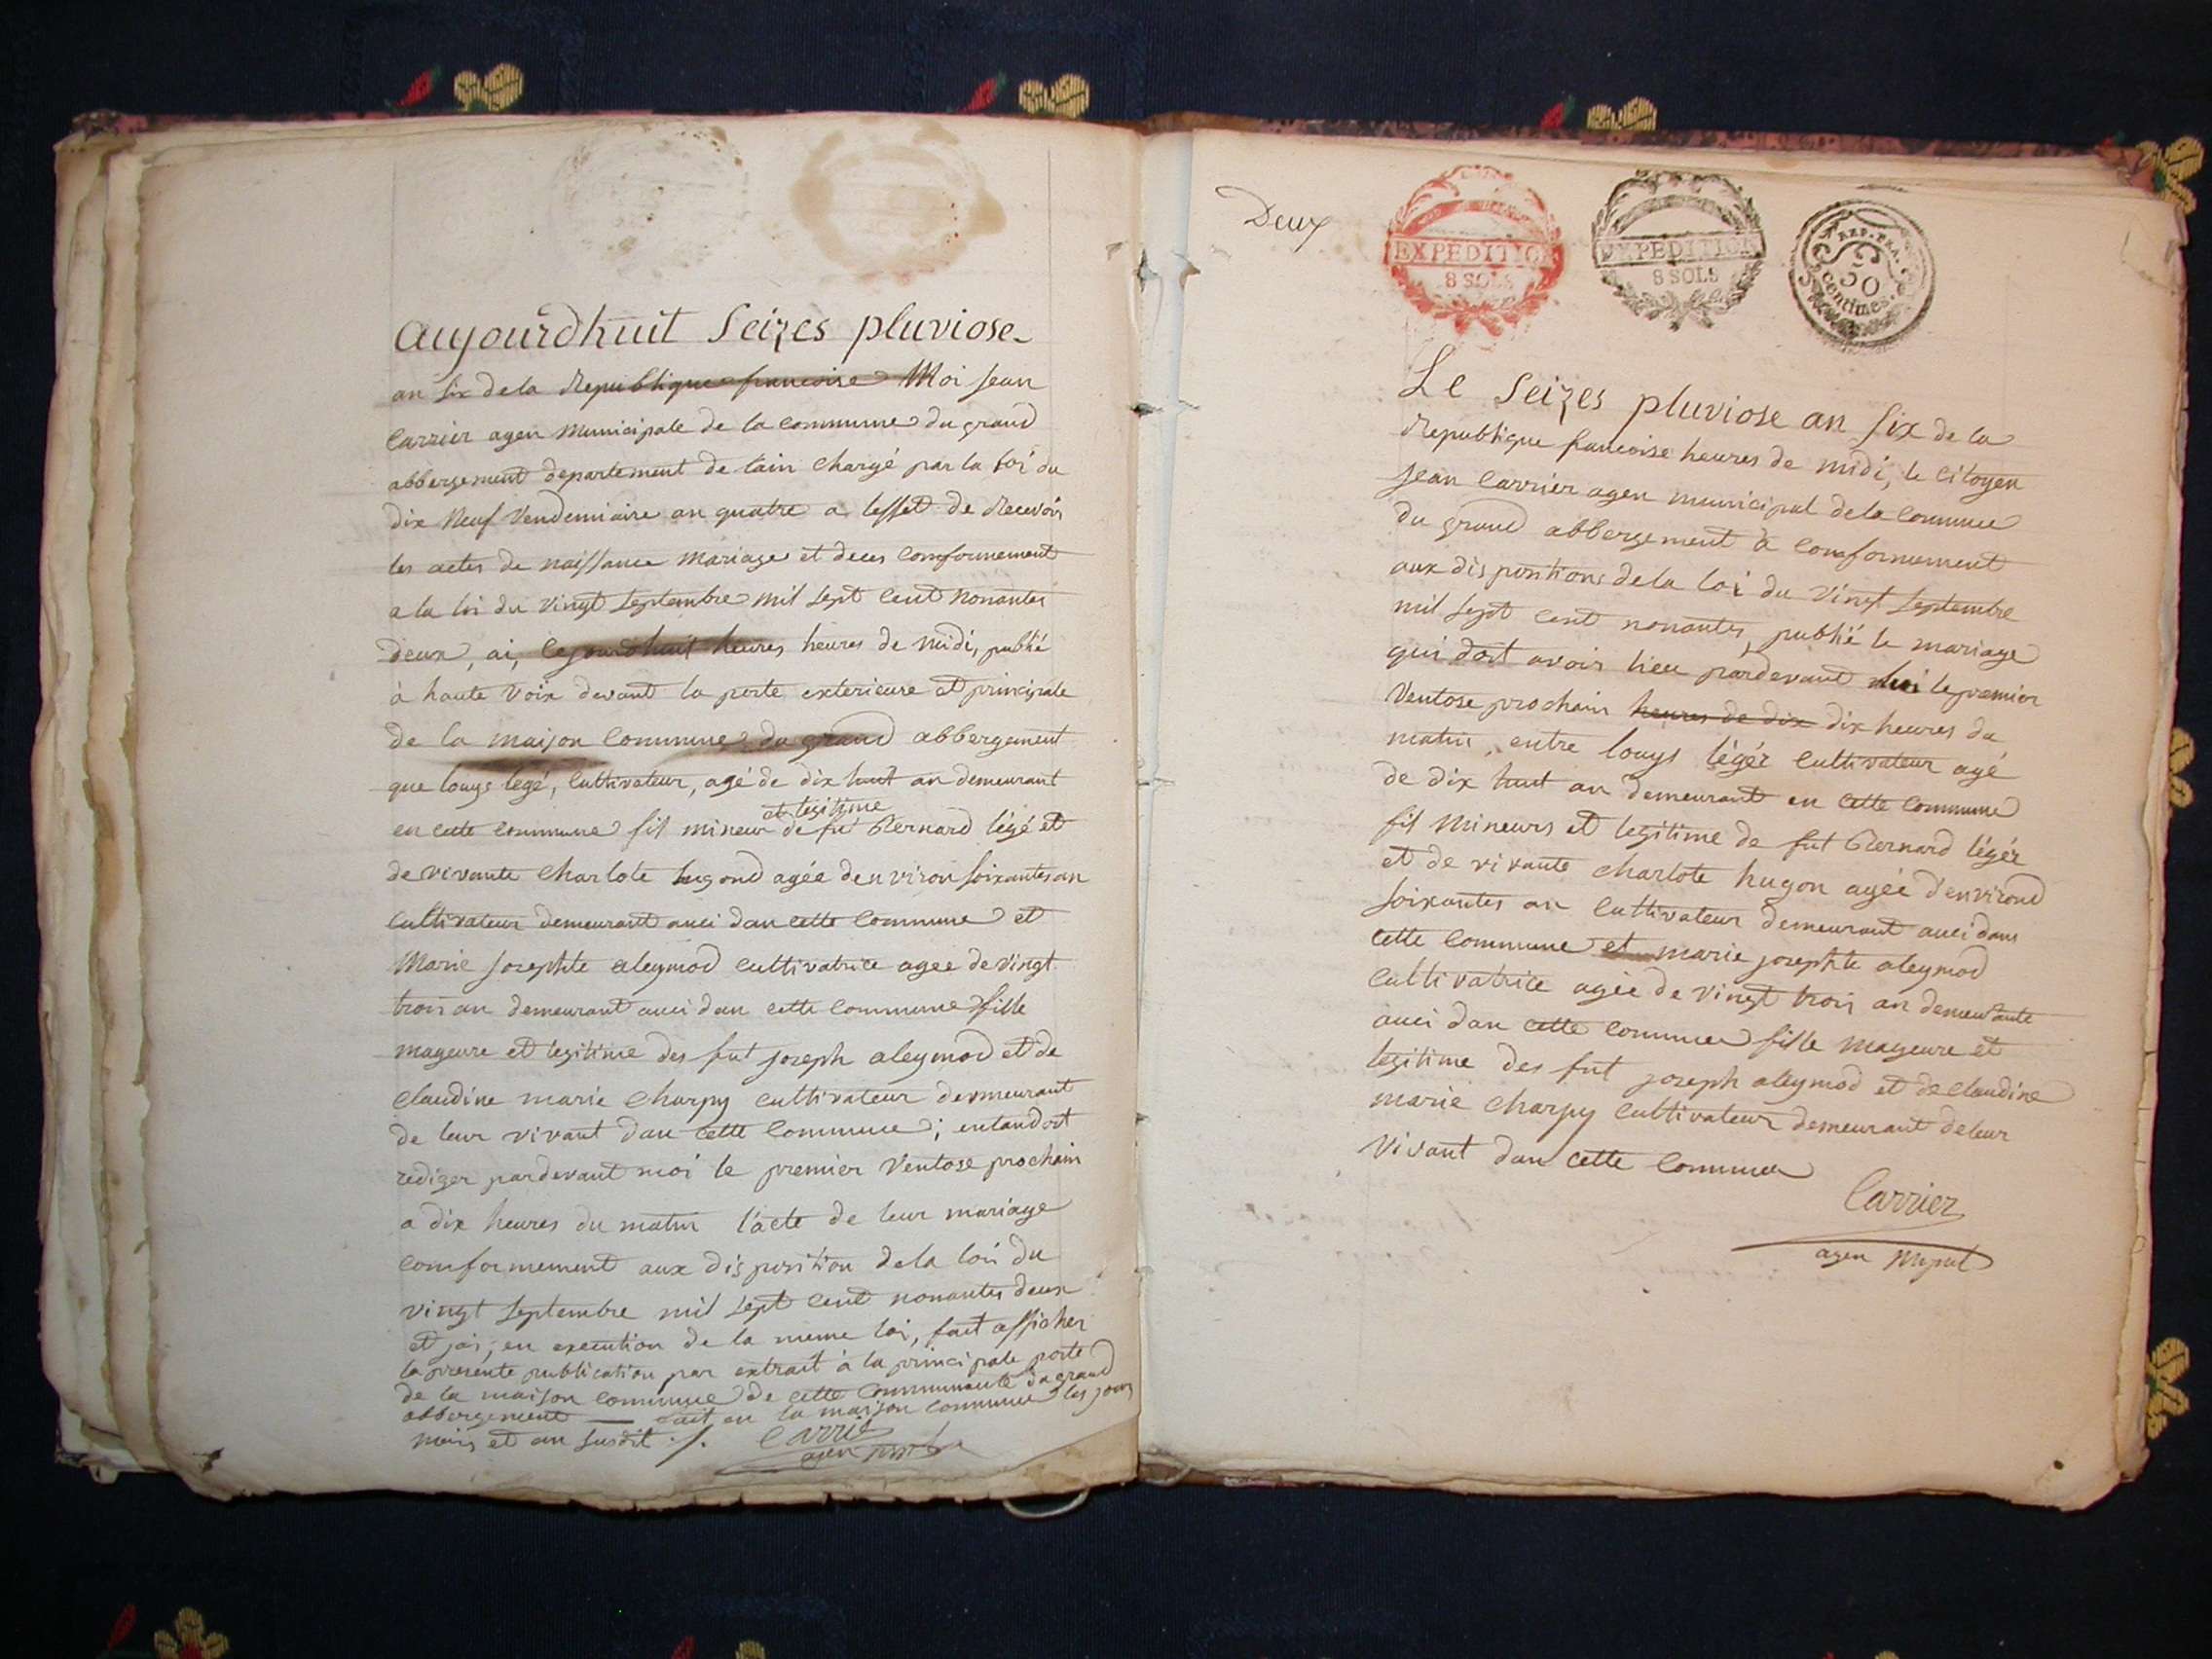 aujourdhuit Seizes pluviose
an six de la Republique francoise Moi jean
Carrier agen Municipale de la commune du grand
abbergement departement de lain chargé par la loi du
dix Neuf Vendemiaire an quatre a leffet de Recevoir
les actes de naissance Mariage et deces comformement
a la loi du vingt Septembre mil sept cent nonantes
deux, ai, cejourdhuit heures heures de midi, publié
à haute voix devant la porte exterieure et principale
de la maison commune du grand abbergement
que louys legé, cultivateur, agé de dix huit an demeurant
et legitime
en cette commune fils mineur de fut Bernard légé et
de vivante Charlote hugond agée denviron soixantes an
cultivateur demeurant auci dan cette commune et
Marie josephte aleymod cultivatrice agee de vingt
trois an demeurant auci dan cette commune fille
mageure et legitime des fut joseph aleymod et de
claudine marie Charpy cultivateur demeurant
de leur vivant dan cette commune; entandort
rediger pardevant moi le premier Ventose prochain
a dix heures du matin l'acte de leur mariage
comformement aux disposition de la loi du
vingt septembre mil sept cent nonantes deux
et jai, en execution de la meme loi, fait afficher
la presente publication par extrait à la principale porte
de la maison commune de cette communauté du grand
abbergement — fait en la maison commune les jour
mois et an susdit ./. Carrier
agen
Deux
EXPEDITION
8 SOLS
EXPEDITION
8 SOLS
REP. FRA.
50
centimes
Le Seizes pluviose an six de la
Republique francoise heures de midi, le citoyen
jean Carrier agen municipal de la commune
du grand abbergement à comformement
aux dispositions de la loi du vingt septembre
mil sept cent nonantes, publié le mariage
qui doit avoir lieu pardevant lui le premier
Ventose prochain heures de dix dix heures du
matin, entre louys légér cultivateur agé
de dix huit an demeurant en cette commune
fils Mineurs et legitime de fut Bernard légér
et de vivante charlote hugon agée d'environd
soixantes an cultivateur demeurant auci dans
cette commune et marie josephte aleymod
cultivatrice agée de vingt trois an demeurante
auci dan cette commune fille mageure et
legitime des fut joseph aleymod et de claudine
marie charpy cultivateur demeurant de leur
vivant dan cette commune
Carrier
agen mpal